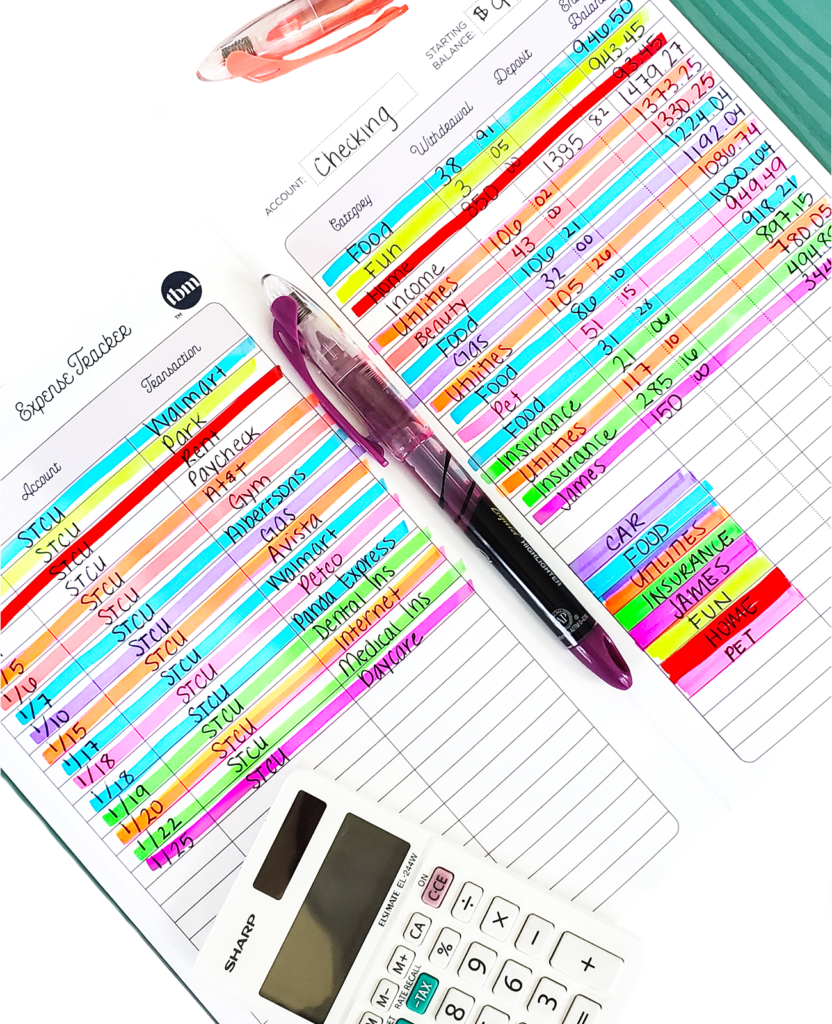 Expense Tracker
tbm
™
Account Transaction
STCU Walmart
STCU Park
STCU Rent
STCU Paycheck
1/5 STCU At&t
1/6 STCU Gym
1/7 STCU Albertsons
1/10 STCU Gas
1/15 STCU Avista
1/17 STCU Walmart
1/18 STCU Petco
1/18 STCU Panda Express
1/19 STCU Dental Ins
1/20 STCU Internet
1/22 STCU Medical Ins
1/25 STCU Daycare
STARTING
BALANCE: $
ACCOUNT: Checking
Category Withdrawal Deposit Balance
Food 38 91 946.50
Fun 3 05 943.45
Home 850 00 93.45
Income 1385 82 1479.27
Utilities 106 02 1373.25
Beauty 43 00 1330.25
Food 106 21 1224.04
Gas 32 00 1192.04
Utilities 105 26 1086.74
Food 86 10 1000.64
Pet 51 15 949.49
Food 31 28 918.21
Insurance 21 06 897.15
Utilities 117 10 780.05
Insurance 285 16 494.8
James 150 00 344
CAR
FOOD
UTILITIES
INSURANCE
JAMES
FUN
HOME
PET
Liquid HIGHLIGHTER
AP
SHARP
ELSIMATE EL-244W
ON
C·CE ÷ × − +
CA % 9 6 3 =
M+ RATE RECALL -TAX 8
M−